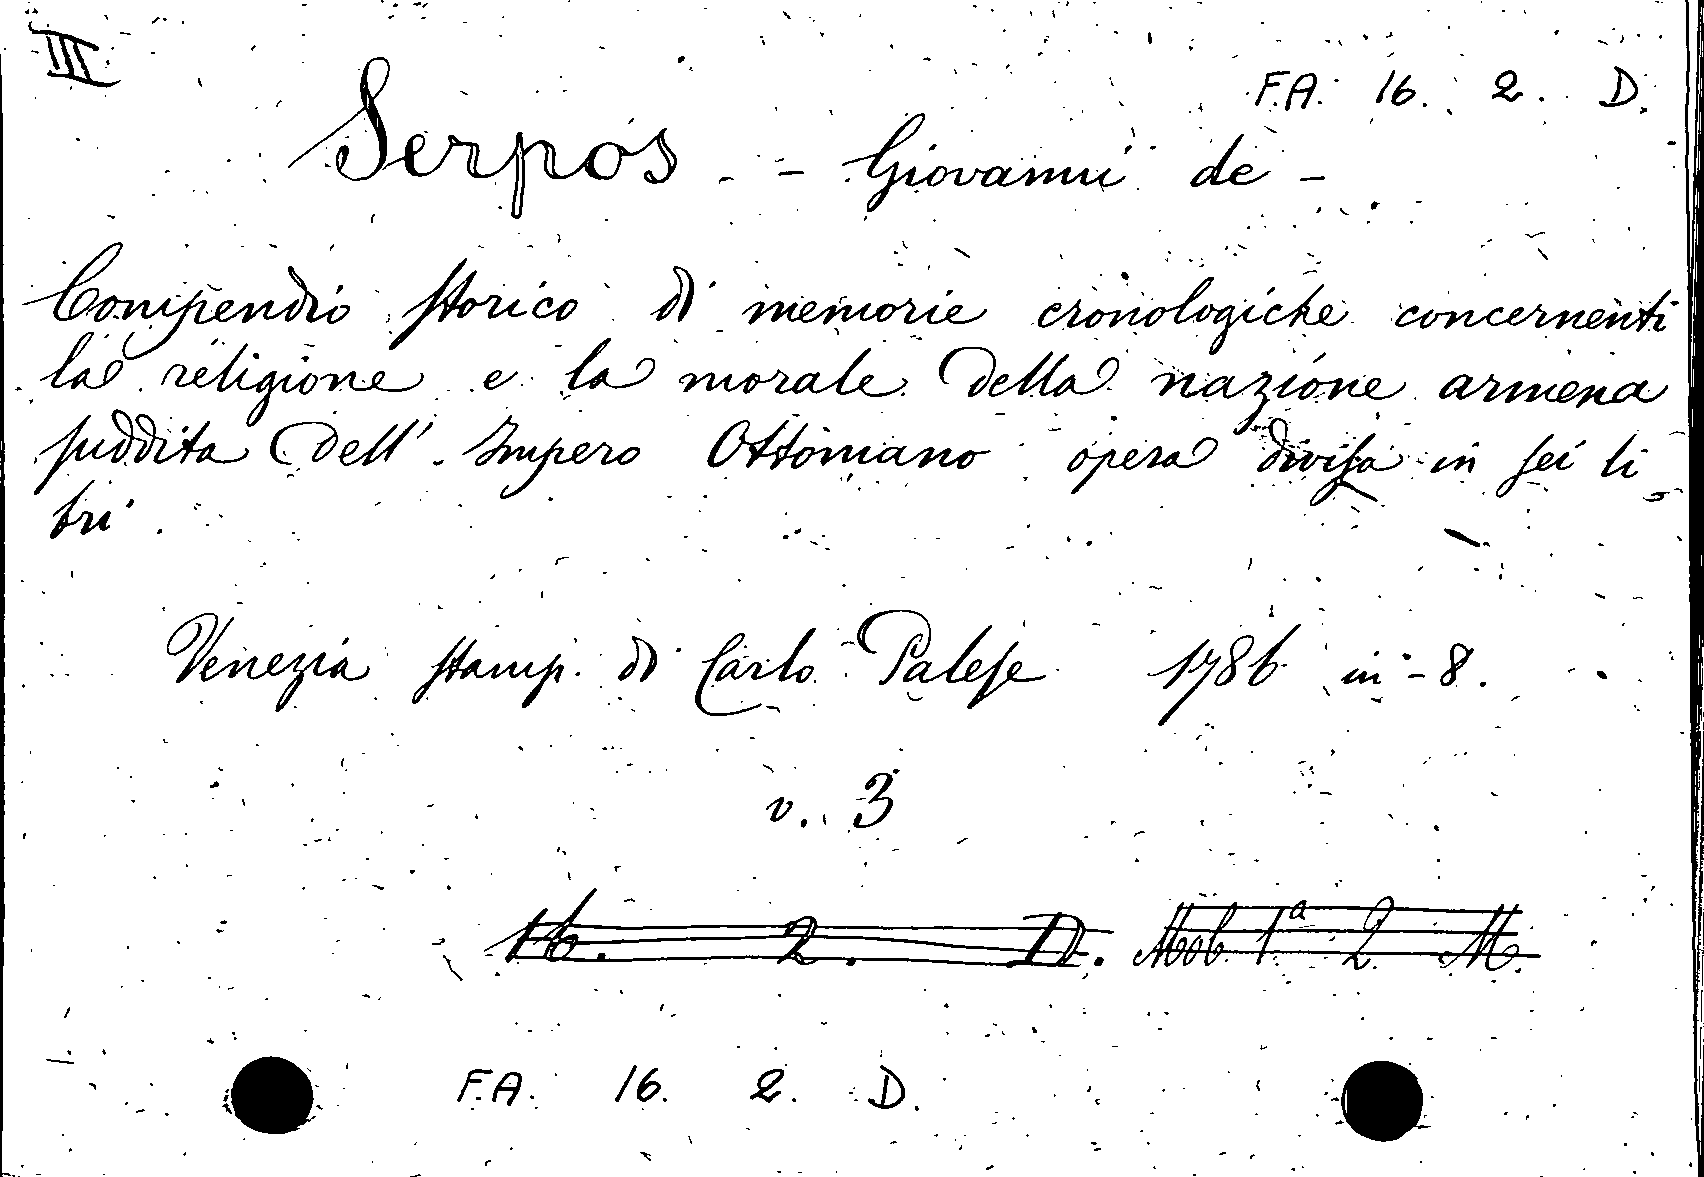 III
F.A. 16. 2. D.
Serpos - - Giovanni de -
Compendio storico di memorie cronologiche concernenti
la religione e la morale della nazione armena
suddita dell' Impero Ottomano opera divisa in sei li
bri
Venezia stamp. di Carlo Palese 1786 in-8.
v. 3
16. 2. D. Mob. 1ª 2 M.
F.A. 16. 2. D.